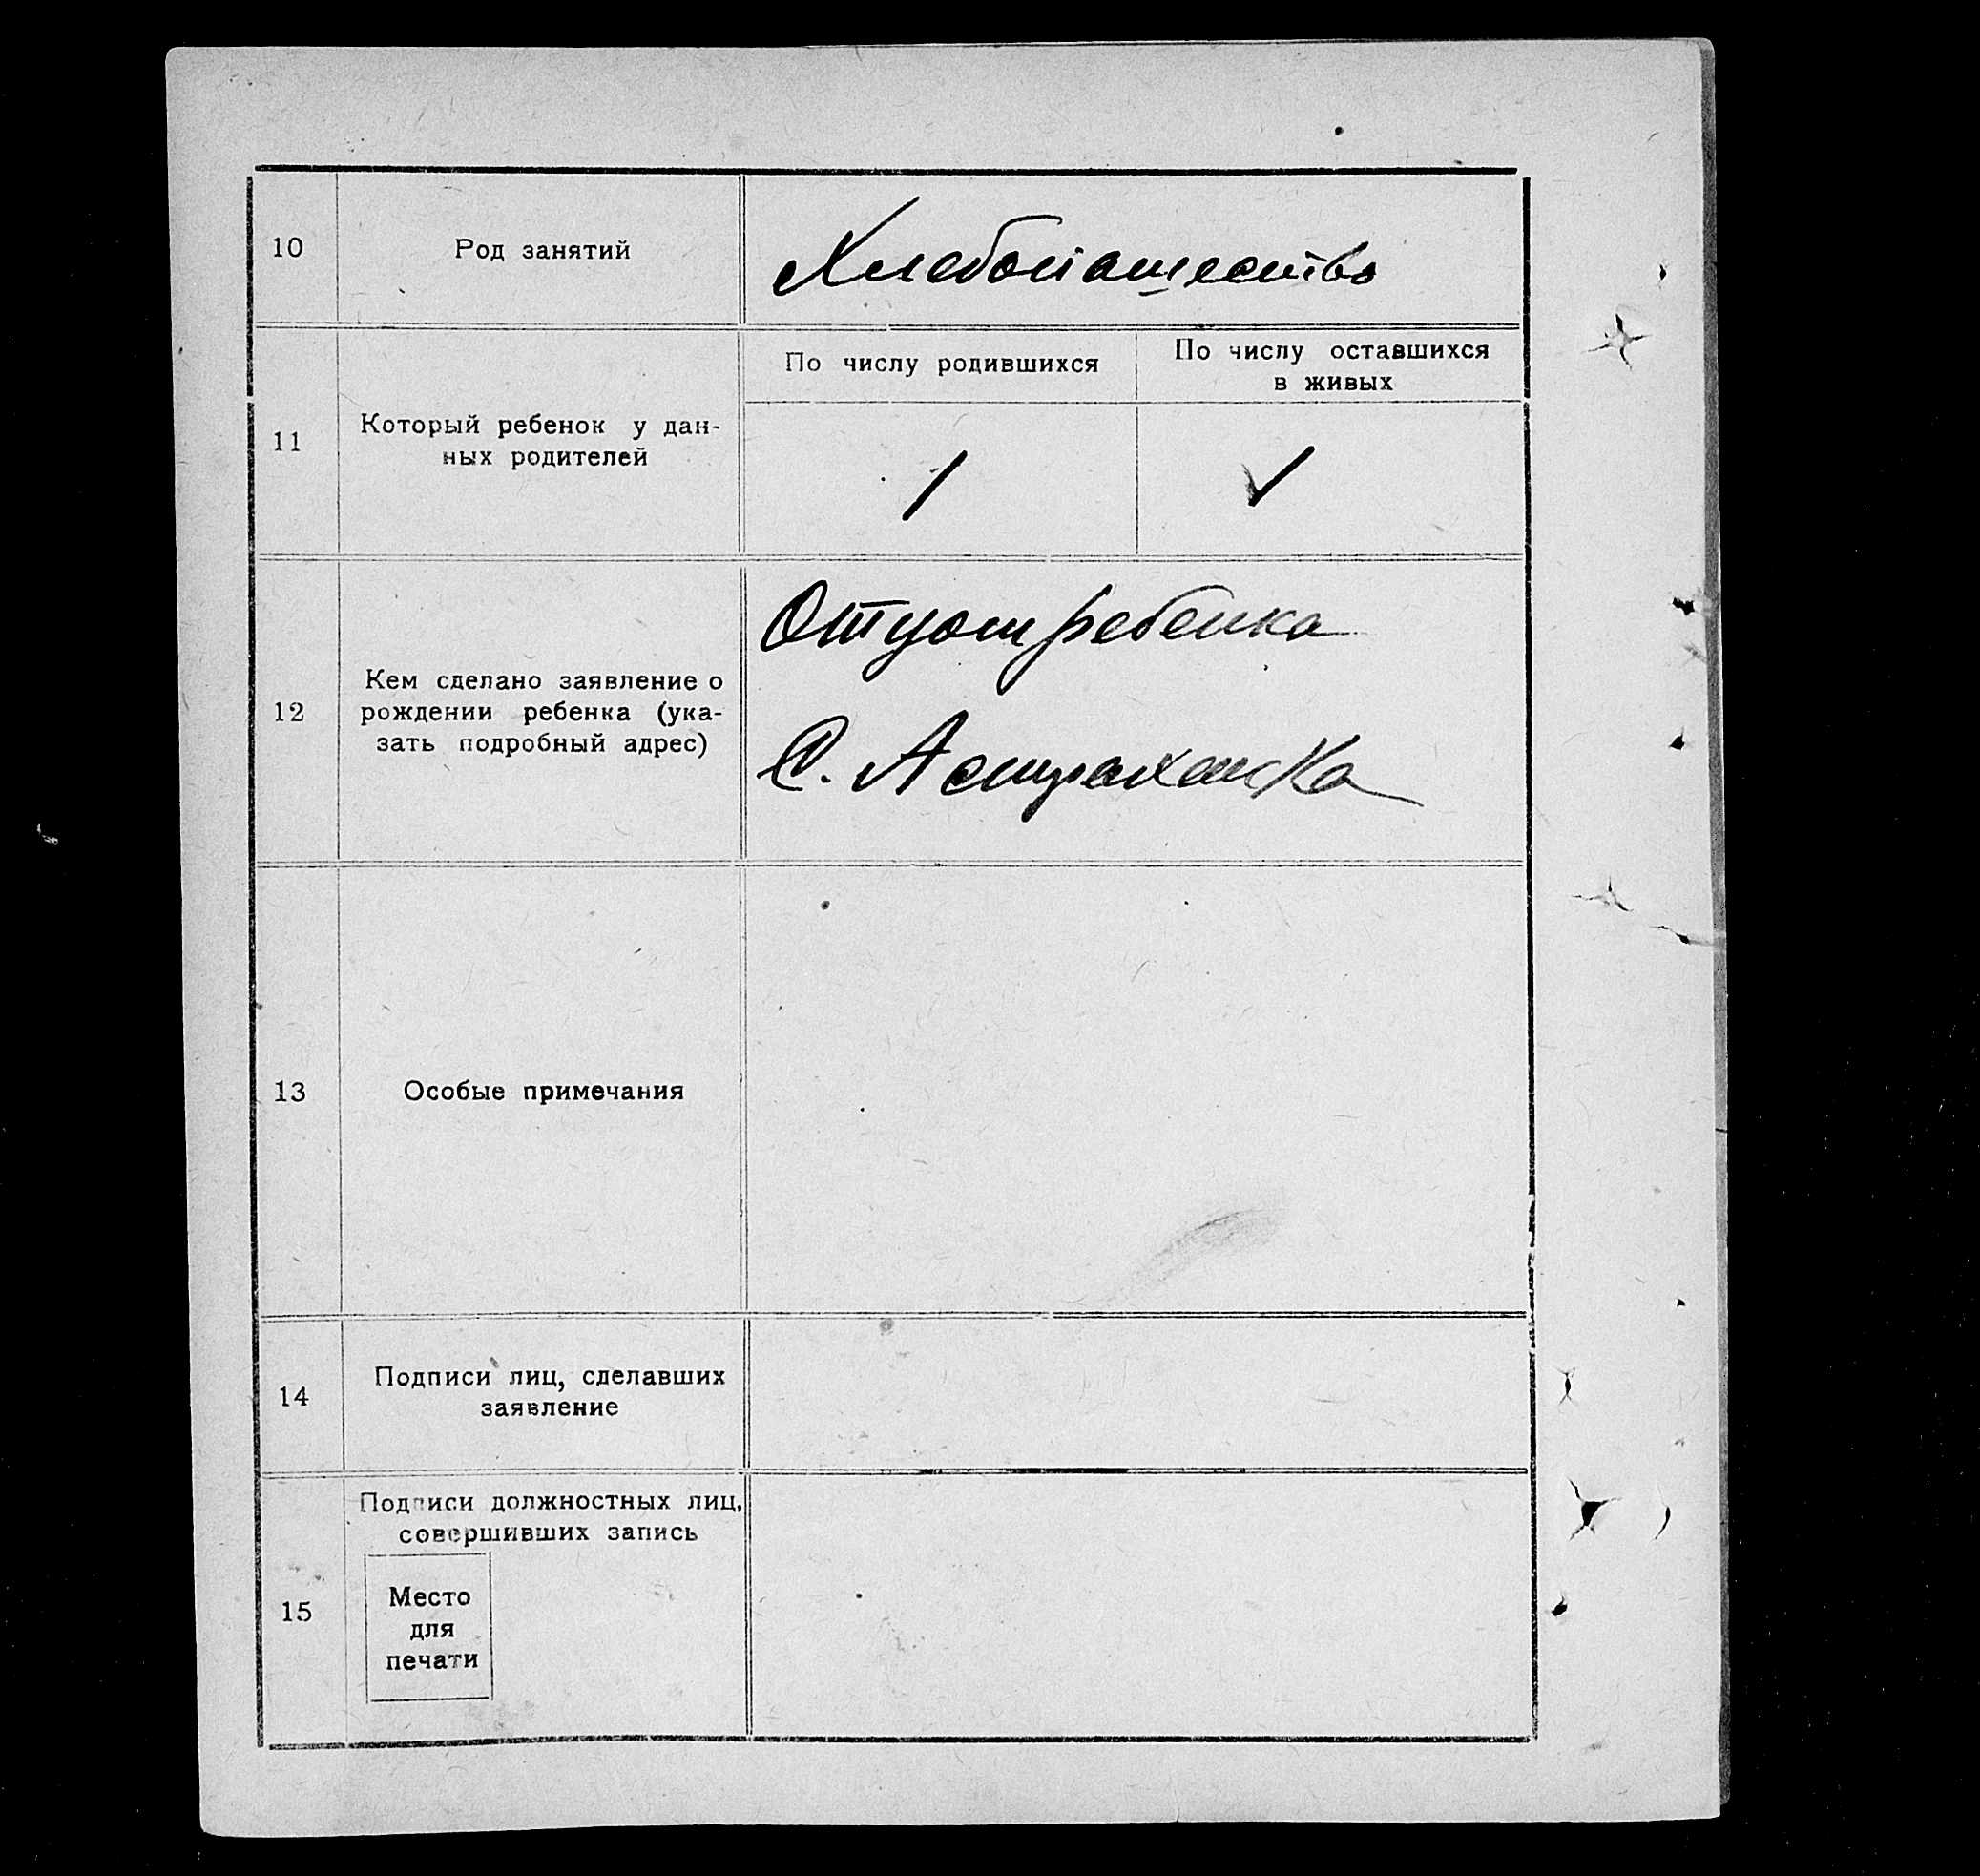 10
Род занятий
Хлебопашество
11
Который ребенок у дан-
ных родителей
По числу родившихся
По числу оставшихся
в живых
1
✓
12
Кем сделано заявление о
рождении ребенка (ука-
зать подробный адрес)
Отцом ребенка
С. Астраханка
13
Особые примечания
14
Подписи лиц, сделавших
заявление
15
Подписи должностных лиц,
совершивших запись
Место
для
печати